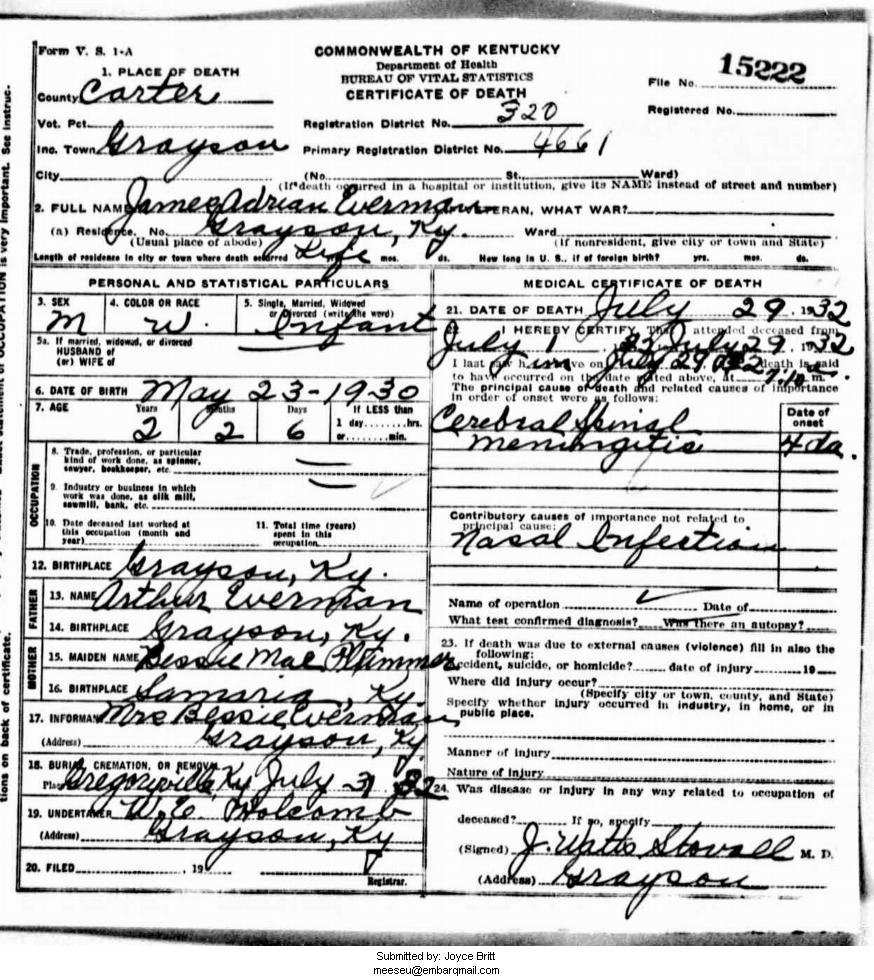 Form V. S. 1-A
COMMONWEALTH OF KENTUCKY
Department of Health
BUREAU OF VITAL STATISTICS
CERTIFICATE OF DEATH
File No. 15222
Registered No.
1. PLACE OF DEATH
County Carter
Vot. Pct.
Registration District No. 320
Inc. Town Grayson
Primary Registration District No. 4661
City (No. St., Ward)
(If death occurred in a hospital or institution, give its NAME instead of street and number)
2. FULL NAME James Adrian Everman VETERAN, WHAT WAR?
(a) Residence. No. Grayson, Ky. Ward
(Usual place of abode) (If nonresident, give city or town and State)
Length of residence in city or town where death occurred Life mos. ds. How long in U. S., if of foreign birth? yrs. mos. ds.
PERSONAL AND STATISTICAL PARTICULARS
3. SEX M
4. COLOR OR RACE W.
5. Single, Married, Widowed or Divorced (write the word) Infant
5a. If married, widowed, or divorced
HUSBAND of
(or) WIFE of
6. DATE OF BIRTH May 23-1930
7. AGE Years Months Days If LESS than
2 2 6 1 day........hrs.
or........min.
OCCUPATION
8. Trade, profession, or particular
kind of work done, as spinner,
sawyer, bookkeeper, etc.
9. Industry or business in which
work was done, as silk mill,
sawmill, bank, etc.
10. Date deceased last worked at
this occupation (month and
year)
11. Total time (years)
spent in this
occupation
12. BIRTHPLACE Grayson, Ky.
FATHER
13. NAME Arthur Everman
14. BIRTHPLACE Grayson, Ky.
MOTHER
15. MAIDEN NAME Bessie Mae Plummer
16. BIRTHPLACE Samaria, Ky.
17. INFORMANT Mrs Bessie Everman
(Address) Grayson, Ky.
18. BURIAL, CREMATION, OR REMOVAL
Place Gregoryville, Ky July 31 32
19. UNDERTAKER W. E. Holcomb
(Address) Grayson, Ky
20. FILED , 19
Registrar.
MEDICAL CERTIFICATE OF DEATH
21. DATE OF DEATH July 29, 1932
22. I HEREBY CERTIFY, That I attended deceased from
July 1 July 29, 1932
I last saw him alive on July 29 1932 death is said
to have occurred on the date stated above, at m.
The principal cause of death and related causes of importance
in order of onset were as follows:
Date of
onset
Cerebral Spinal
meningitis 4 da.
Contributory causes of importance not related to
principal cause:
Nasal Infection
Name of operation Date of
What test confirmed diagnosis? Was there an autopsy?
23. If death was due to external causes (violence) fill in also the
following:
Accident, suicide, or homicide? date of injury 19
Where did injury occur?
(Specify city or town, county, and State)
Specify whether injury occurred in industry, in home, or in
public place.
Manner of injury
Nature of injury
24. Was disease or injury in any way related to occupation of
deceased? If so, specify
(Signed) J. Watts Stovall M. D.
(Address) Grayson
OCCUPATION is very important. See instruc-
tions on back of certificate.
Submitted by: Joyce Britt
meeseu@embarqmail.com